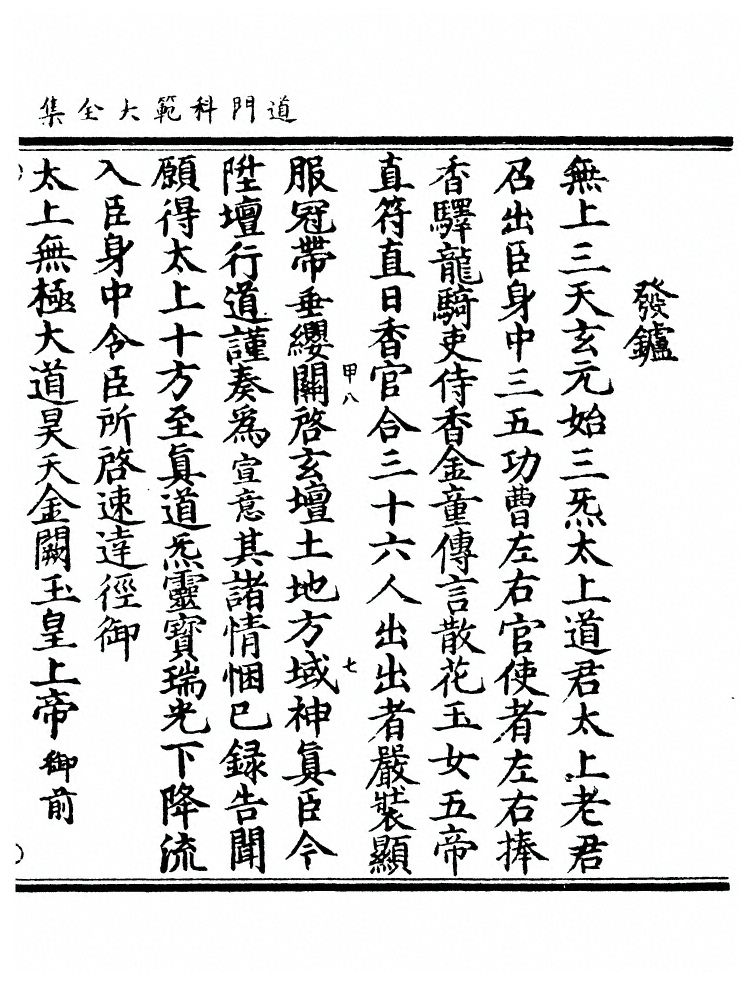 道門科範大全集
發鑪
無上三天玄元始三炁太上道君太上老君
召出臣身中三五功曹左右官使者左右捧
香驛龍騎吏侍香金童傳言散花玉女五帝
直符直日香官合三十六人出出者嚴裝顯
甲八
七
服冠帶垂纓關啓玄壇土地方域神眞臣今
陞壇行道謹奏爲宣意其諸情悃已録告聞
願得太上十方至眞道炁靈寳瑞光下降流
入臣身中令臣所啓速達徑御
太上無極大道昊天金闕玉皇上帝御前